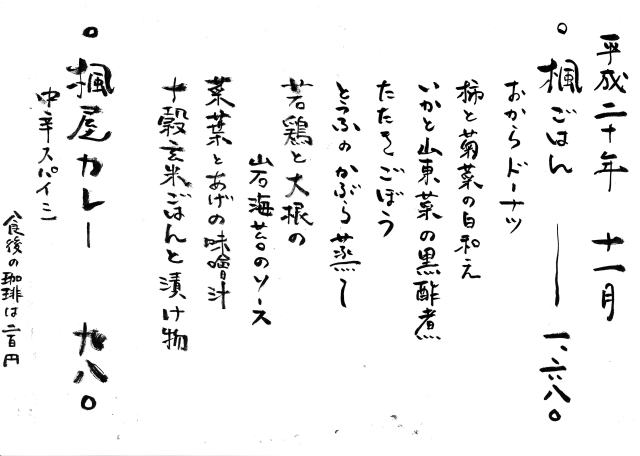 平成二十年 十一月
○楓ごはん ── 一、六八〇
おからドーナツ
柿と菊菜の白和え
いかと山東菜の黒酢煮
たたきごぼう
とうふのかぶら蒸し
若鶏と大根の
岩海苔のソース
菜葉とあげの味噌汁
十穀玄米ごはんと漬け物
○楓屋カレー 九八〇
中辛スパイシー
食後の珈琲は二百円